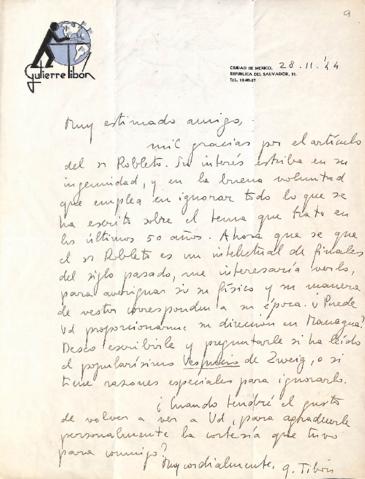 9
Gutierre Tibón
CIUDAD DE MÉXICO, 28.11.'44
REPÚBLICA DEL SALVADOR,
TEL.
Muy estimado amigo,
mil gracias por el artículo
del sr Robleto. Su interés estriba en su
ingenuidad, y en la buena voluntad
que emplea en ignorar todo lo que se
ha escrito sobre el tema que trata en
los últimos 50 años. Ahora que se que
el sr Robleto es un intelectual de finales
del siglo pasado, me interesaría verlo,
para averiguar si su físico y su manera
de vestir corresponden a su época. ¿Puede
Vd proporcionarme su dirección en Managua?
Deseo escribirle y preguntarle si ha leído
el popularísimo Vespucio de Zweig, o si
tiene razones especiales para ignorarlo.
¿Cuándo tendré el gusto
de volver a ver a Vd, para agradecerle
personalmente la cortesía que tuvo
para conmigo?
Muy cordialmente, G. Tibón